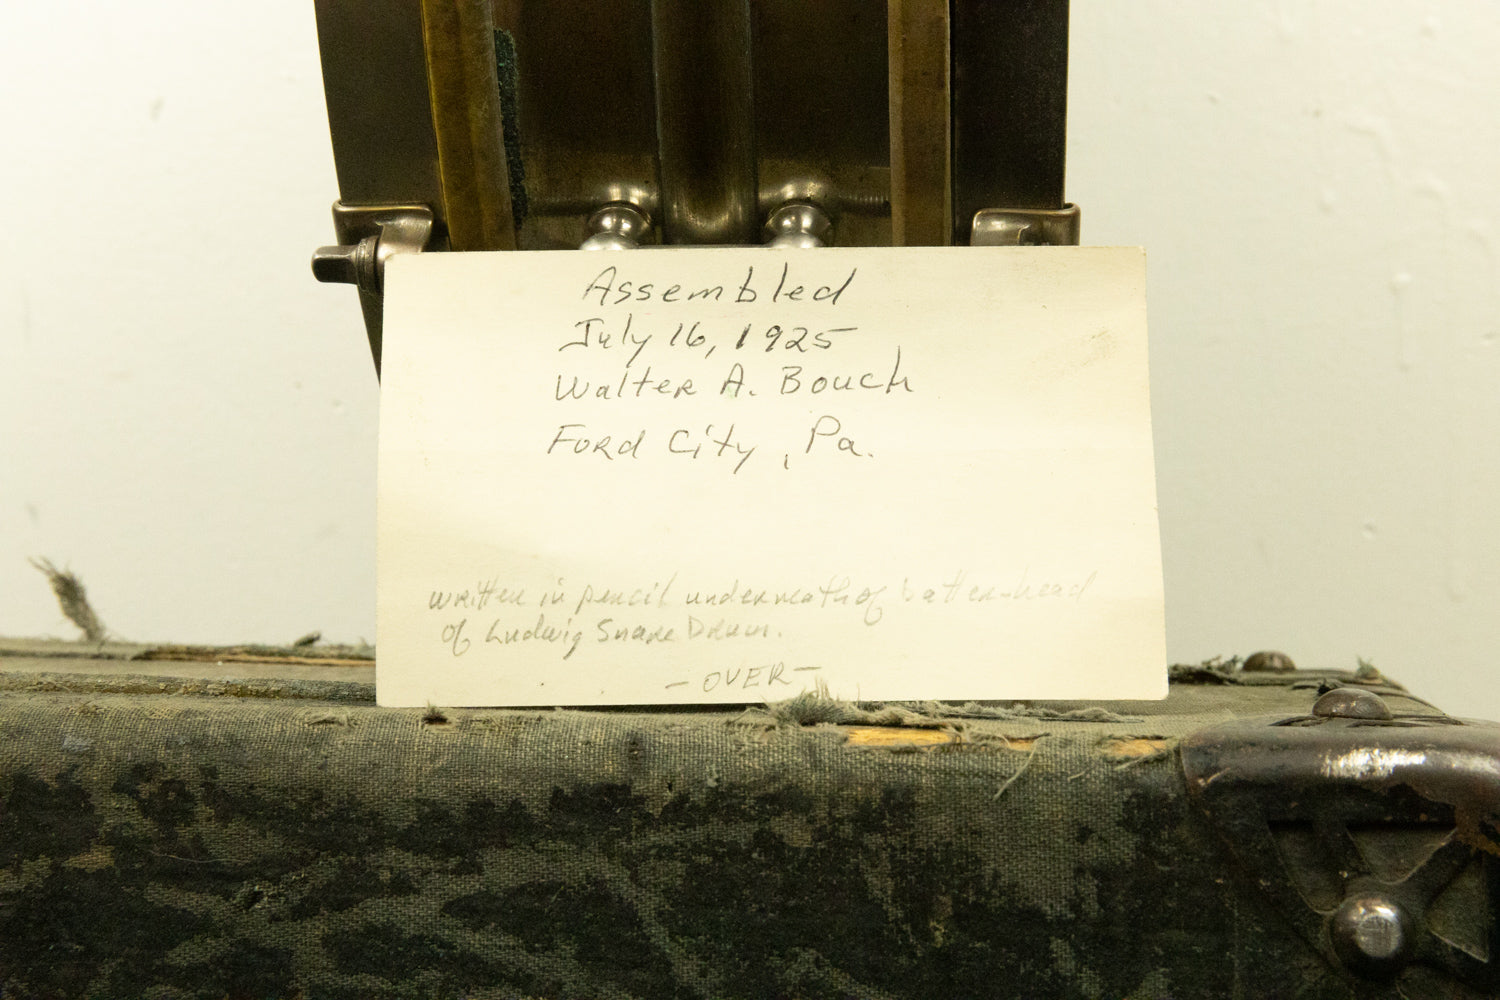 Assembled
July 16, 1925
Walter A. Bouch
Ford City, Pa.
written in pencil underneath of batter-head
of Ludwig Snare Drum.
- OVER -